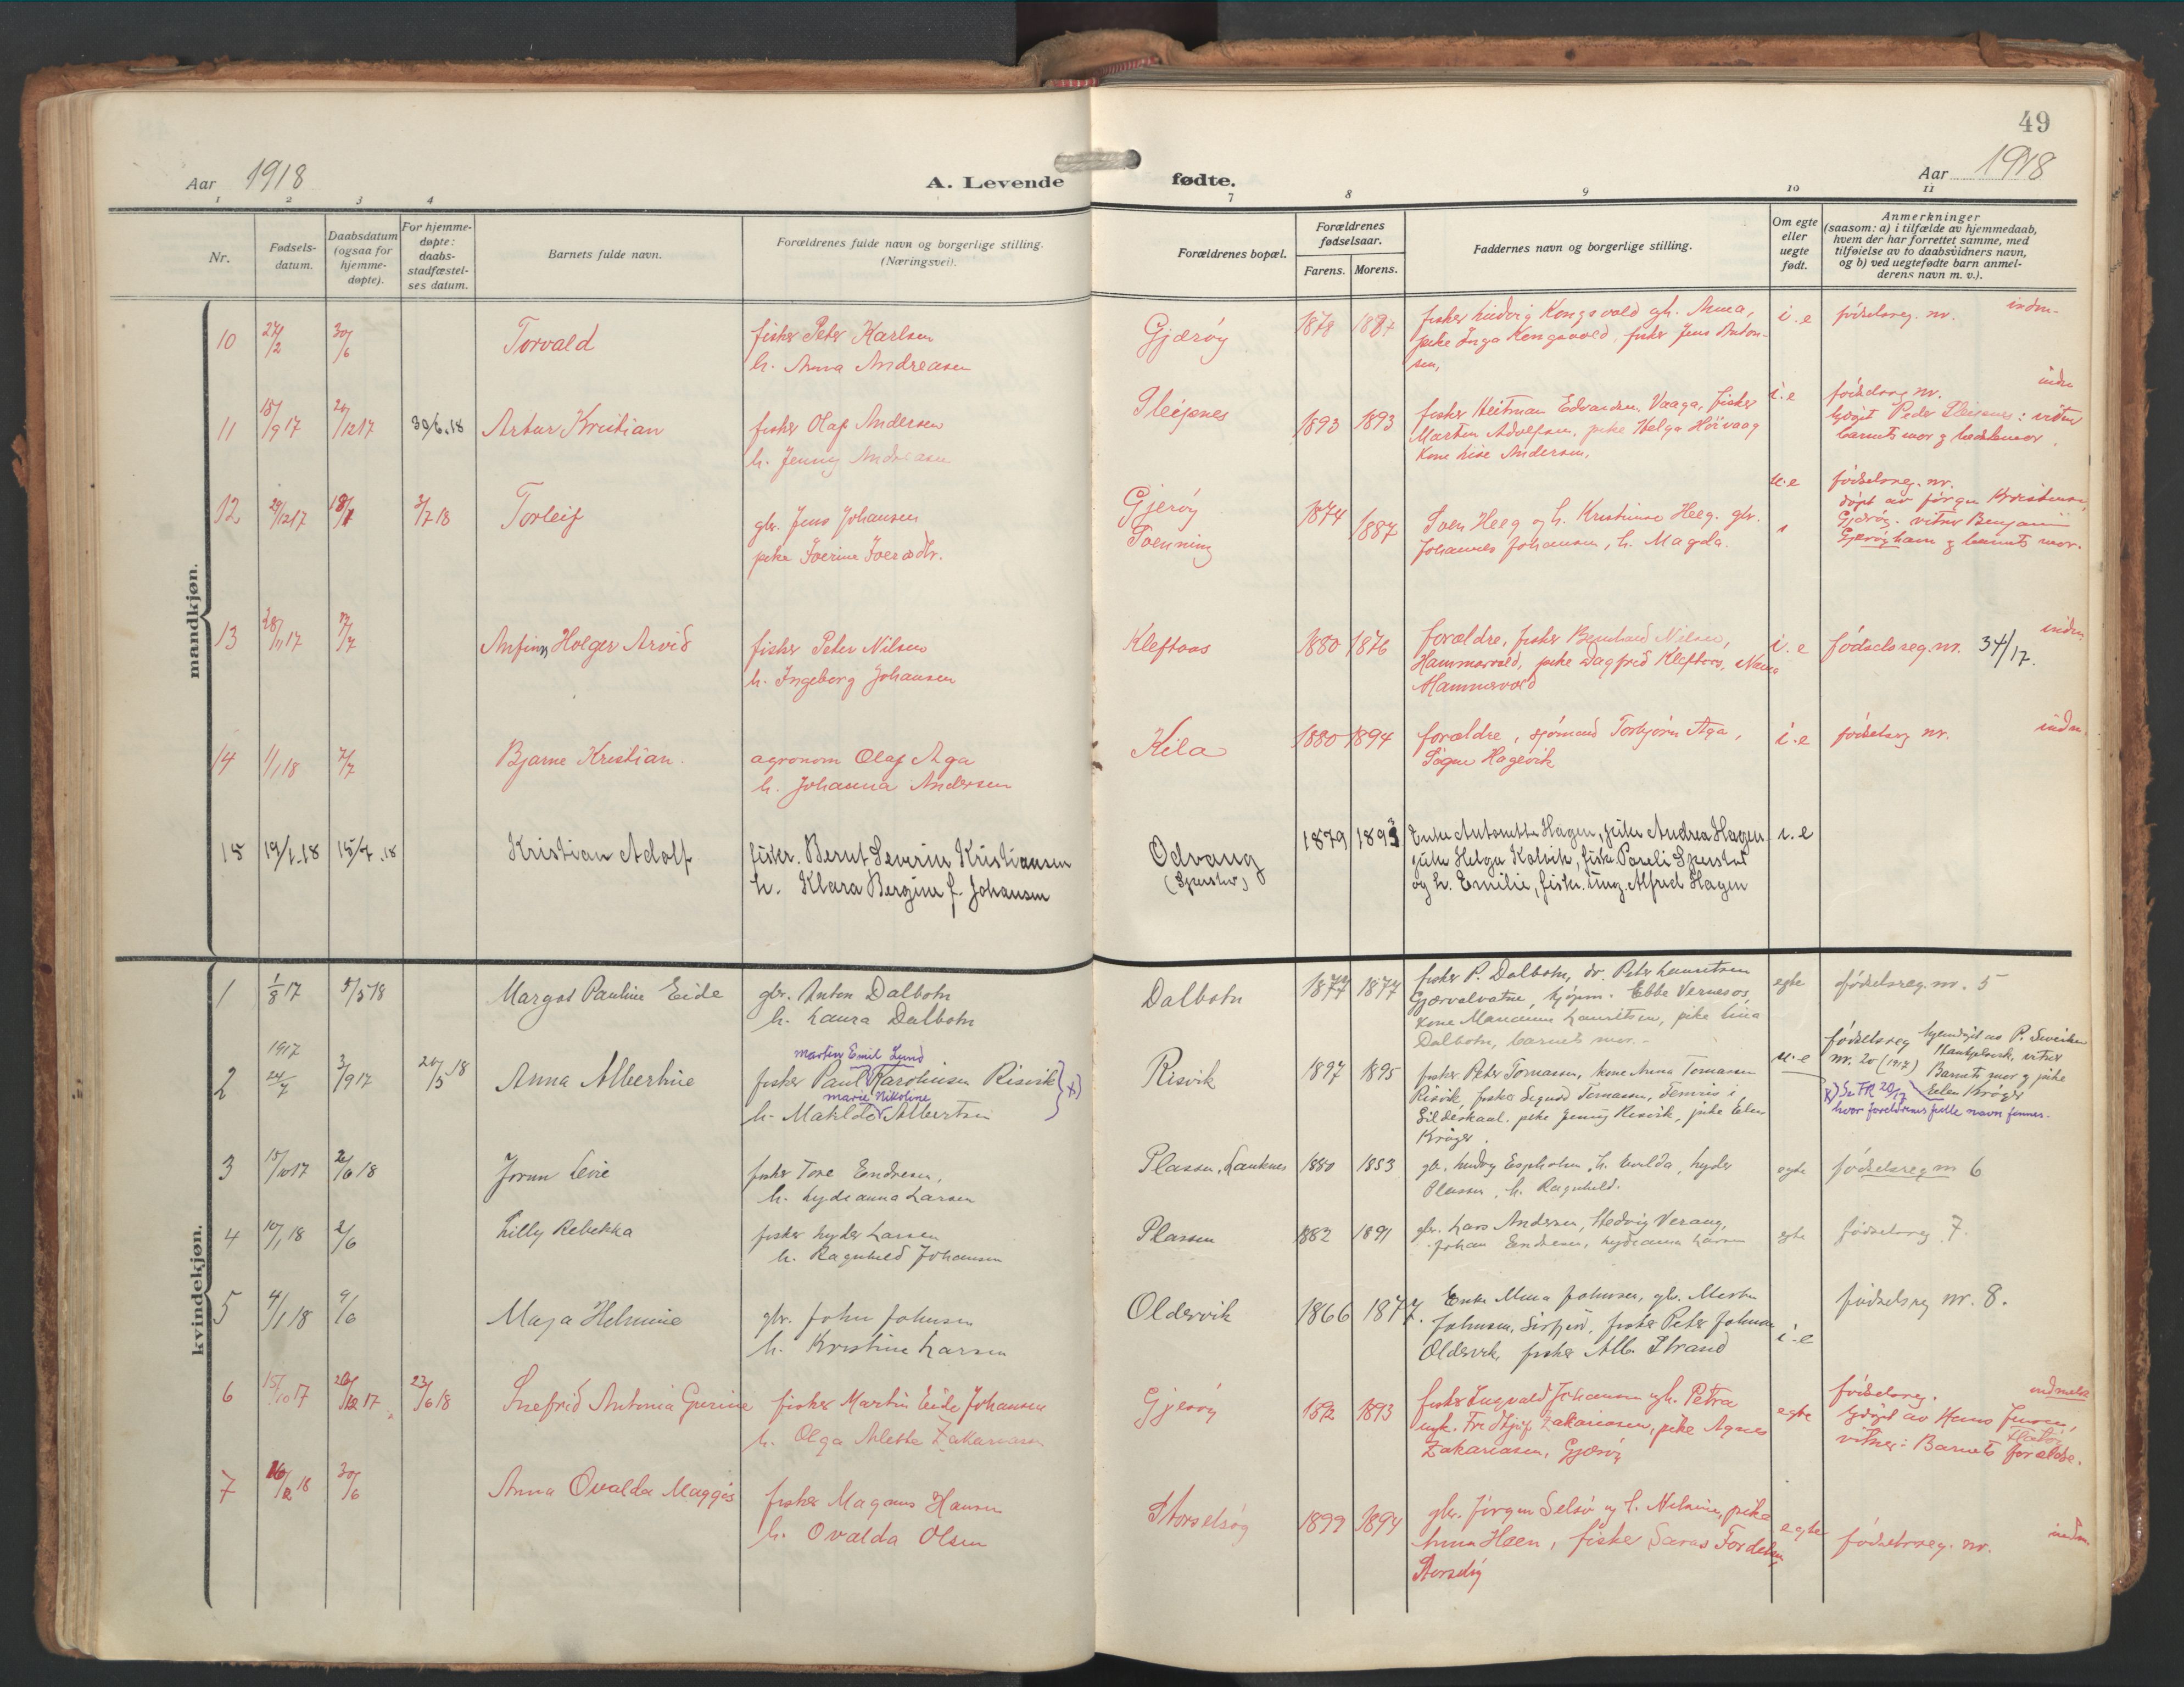 49
Aar 1918
A. Levende fødte.
Aar 1918
1 2 3 4 7 8 9 10 11
Nr.
Fødsels-
datum.
Daabsdatum
(ogsaa for
hjemme-
døpte).
For hjemme-
døpte:
daabs-
stadfæstel-
ses datum.
Barnets fulde navn.
Forældrenes fulde navn og borgerlige stilling.
(Næringsvei).
Forældrenes bopæl.
Forældrenes
fødselsaar.
Farens. Morens.
Faddernes navn og borgerlige stilling.
Om egte
eller
uegte
født.
Anmerkninger
(saasom: a) i tilfælde av hjemmedaab,
hvem der har forrettet samme, med
tilføielse av to daabsvidners navn,
og b) ved uegtefødte barn anmel-
derens navn m. v.).
mandkjøn.
10 27/2 30/6 Torvald
fisker Peter Karlsen
h. Anna Andreasen
Gjærøy 1878 1887
fisker Ludvig Kongsvold gh. Anna,
pike Inga Kongsvold, fisker Jens Anton-
sen,
i.e fødselsreg. nr. indm.
11 15/9 17 20/12 17 30/6.18 Artur Kristian
fisker Olaf Andersen
h. Jenny Andreasen
Pleipnes 1893 1893
fisker Heitman Edvardsen, Vaaga, fisker
Martin Adolfsen, pike Helga Hörvaag
Kone Lise Andersen,
i.e fødselsreg nr. indm
hjdøpt Peder Pleipnes: vidner
barnets mor g bedstemor.
12 29/12 17 18/1 3/7 18 Torleif
gbr. Jens Johansen
pike Iverine Iversdtr.
Gjerøy
Svenning
1874 1887
Sven Heeg og h. Kristine Heeg. gbr.
Johannes Johansen, h. Magda.
u.e fødselsreg. nr.
døpt av Jörgen Kristensen,
Gjærøy. vitner Benjamin
Gjerøyhavn g barnets mor.
13 28/11 17 7/7 Anfinn Holger Arvid
fisker Peter Nilsen
h. Ingeborg Johansen
Kleftaas 1880 1876
forældre, fisker Bernhard Nilsen,
Hammervold, pike Dagfrid Kleftaas, Nanna
Hammervold
i.e fødselsreg. nr. 34/17. indm
14 1/1 18 7/7 Bjarne Kristian.
agronom Olaf Aga
h. Johanna Andersen
Kila 1880 1894
forældre, sjömand Torbjörn Aga,
Signe Hagevik
i.e fødselsreg nr. indm.
15 19/1.18 15/7.18 Kristian Adolf
fisker. Bernt Severin Kristiansen
h. Klara Bergine f. Johansen
Odvang
(Sperstad)
1879 1893
Enke Antonette Hagen, pike Andrea Hagen
pike Helga Kalvik, fisker Pareli Sperstad
og h. Emilie, fisker. ung. Alfred Hagen
i.e
kvindekjøn.
1 1/8 17 5/5 18 Margot Pauline Eide
gbr. Anton Dalbotn
h. Laura Dalbotn
Dalbotn 1877 1877
fisker P. Dalbotn, dr. Peter Lauritsen
Gjervalvatne, kjöpm. Ebbe Vernesos,
Kone Marianne Lauritsen, pike Lina
Dalbotn, barnets mor.
egte fødselsreg. nr. 5
2 1917 24/7 3/9 17 20/5.18 Anna Albertine
Martin Emil Lund
fisker Paul Karolinsen Risvik
Marie Nikoline
h. Matilde Albertsen x)
Risvik 1897 1895
fisker Peter Tomassen, kone Anna Tomassen
Risvik, fisker Sigurd Tomassen, Femris i
Gildeskaal, pike Jenny Risvik, pike Elen
Kröger.
u.e fødselsreg hjemdöpt av P.
nr. 20 (1917) vitner
Barnets mor g pike
Elen Kröger
x) Se FR 20/17
hvor foreldrenes fulle navn finnes.
3 15/10 17 2/6 18 Jorun Levie
fisker Tore Endresen,
h. Lydeanna Larsen
Plassen, Lauknes 1880 1883
gbr. Ludvig Espholm, h. Evelda, Lyder
Plassen, h. Ragnhild.
egte fødselsreg nr 6
4 10/1 18 2/6 Lilly Rebekka
fisker Lyder Larsen
h. Ragnhild Johansen
Plassen 1882 1891
gbr. Lars Andersen, Hedvig Verang,
Johan Endresen, Lydeanna Larsen
egte fødselsreg 7.
5 4/1 18 9/6 Maja Helmine
gbr. John Johnsen
h. Kristine Larsen
Oldervik 1866 1877.
Enke Mina Johnsen, gbr. Martin
Johnsen, Sörfjord, fisker Peter Johnsen
Oldervik, fisker Alb. Strand
i.e fødselsreg nr. 8.
6 15/10 17 26/12 17 23/6 18 Snefrid Antonia Gurine
fisker Martin Eide Johansen
h. Olga Alette Zakariasen
Gjerøy 1892 1893
fisker Ingvald Johansen gh. Petra
ungk. Fridtjof Zakariasen, pike Agnes
Zakariasen, Gjerøy
egte fødselsreg. indmeldt
hjdøpt av Hans Jensen,
Hatöy
vitner: Barnets forældre.
7 16/2 18 30/6 Anna Ovalda Magges
fisker Magnus Hansen
h. Ovalda Olsen
Storselsøy 1899 1894
gbr. Jörgen Selsö og h. Nilsine, pike
Anna Haen, fisker Saras Fordelsen,
Storselöy
egte fødselsreg. nr. indm